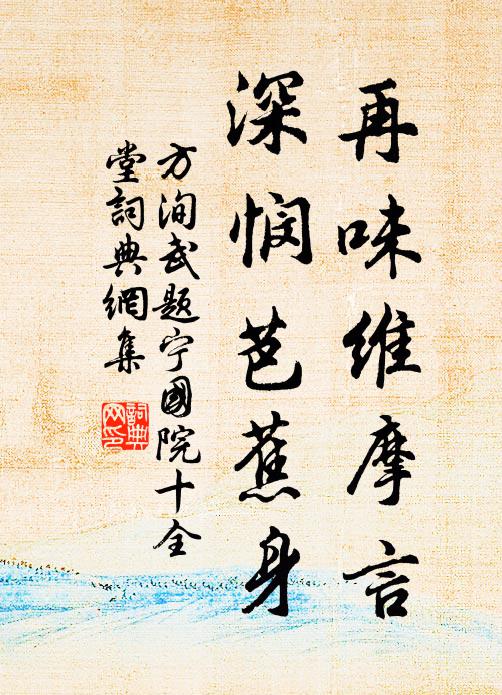 再味維摩言
深悯芭蕉身
方洵武题宁國院十全
堂詞典網集
詞典
网印